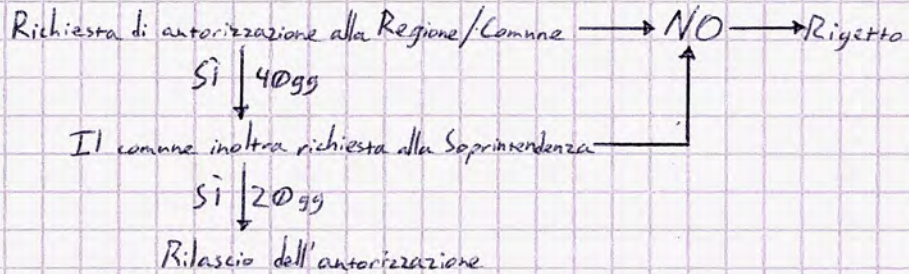 Richiesta di autorizzazione alla Regione/Comune → NO → Rigetto
SÌ ↓ 40gg
Il comune inoltra richiesta alla Soprintendenza
SÌ ↓ 20gg
Rilascio dell'autorizzazione